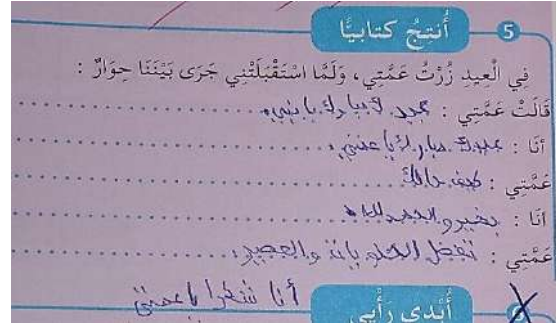 5 أُنتِجُ كتابيًّا
فِي الْعِيدِ زُرْتُ عَمَّتِي، وَلَمَّا اسْتَقْبَلَتْنِي جَرَى بَيْنَنَا حِوَارٌ :
قَالَتْ عَمَّتِي : عيد مبارك يا بني
أنَا : عيدك مبارك يا عمتي
عَمَّتِي : كيف حالك
أنَا : بخير والحمد لله
عَمَّتِي : تفضل الحلويات والعصير
أنا شكرا يا عمتي
أُبْدِي رَأْيِي